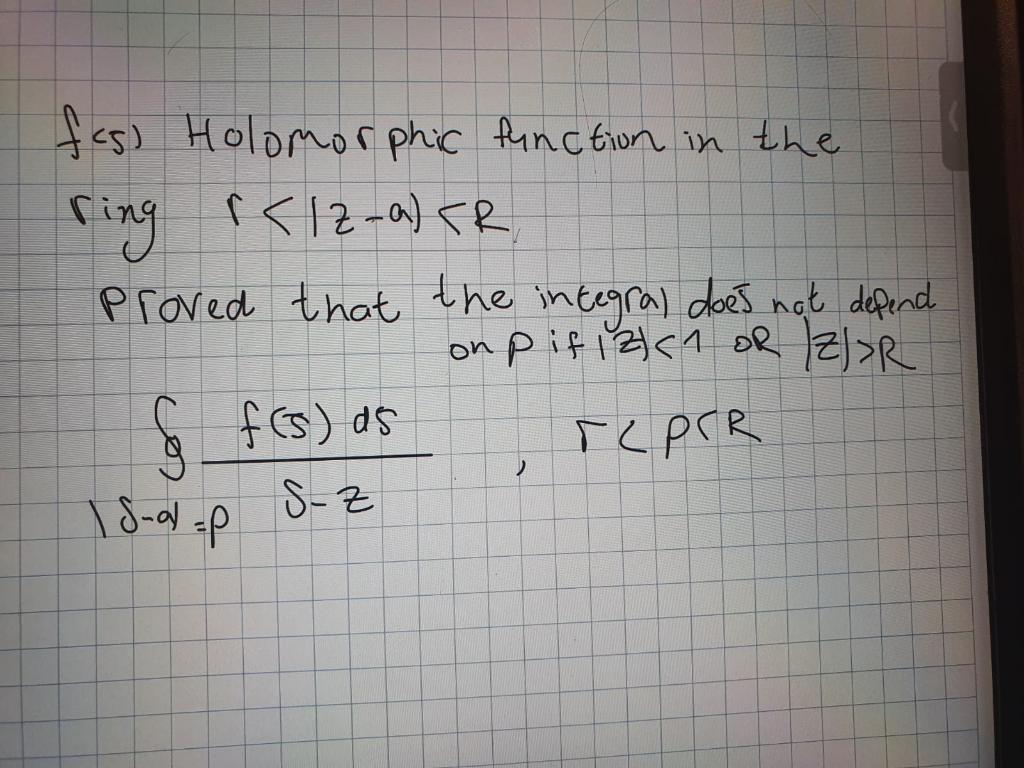 f(s) Holomorphic function in the
ring r < |z-a| < R
proved that the integral does not depend
on p if |z| < 1 OR |z| > R
∮ f(s) ds , r < p < R
|s-a| = p s-z